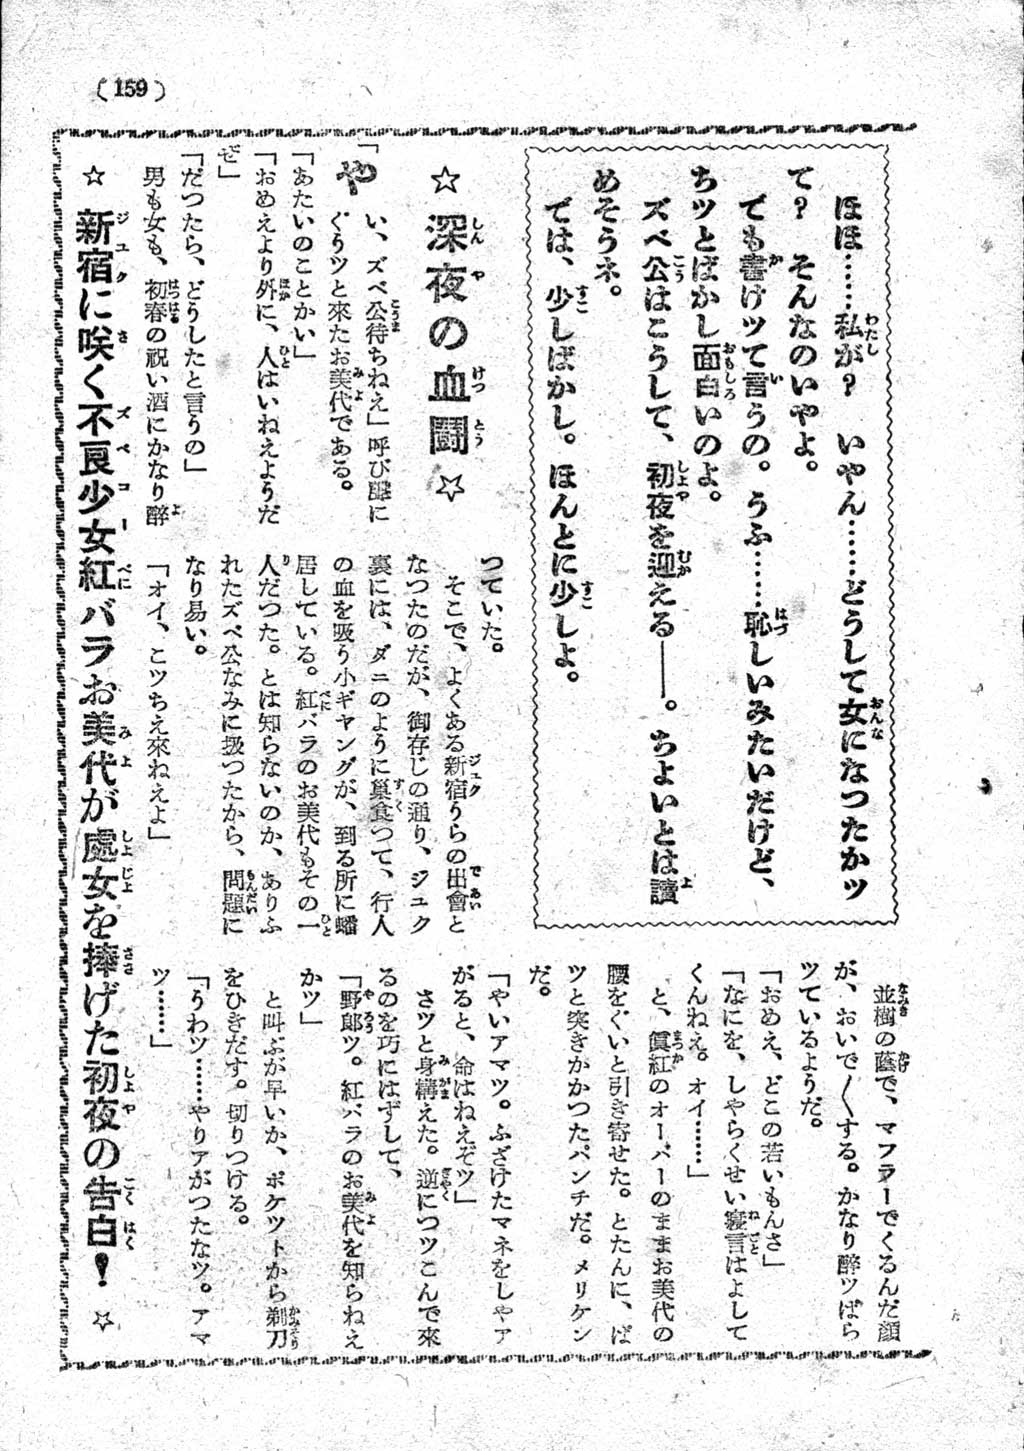 (159)
ほほ……私が？　いやん……どうして女になつたかツ
て？　そんなのいやよ。
でも書けツて言うの。うふ……恥しいみたいだけど、
ちツとばかし面白いのよ。
ズベ公はこうして、初夜を迎える――。ちよいとは讀
めそうネ。
では、少しばかし。ほんとに少しよ。
☆深夜の血闘☆
「や
い、ズベ公待ちねえ」呼び聲に
ぐるツと來たお美代である。
「あたいのことかい」
「おめえより外に、人はいねえようだ
ぜ」
「だつたら、どうしたと言うの」
男も女も、初春の祝い酒にかなり醉
つていた。
そこで、よくある新宿うらの出會と
なつたのだが、御存じの通り、ジユク
裏には、ダニのように巣食つて、行人
の血を吸り小ギヤングが、到る所に蟠
居している。紅バラのお美代もその一
人だつた。とは知らないのか、ありふ
れたズベ公なみに扱つたから、問題に
なり易い。
「オイ、こツちえ來ねえよ」
並樹の蔭で、マフラーでくるんだ顔
が、おいで〱する。かなり醉ツぱら
ツているようだ。
「おめえ、どこの若いもんさ」
「なにを、しやらくせい寝言はよして
くんねえ。オイ……」
と、眞紅のオーバーのままお美代の
腰をぐいと引き寄せた。とたんに、ぱ
ツと突きかかつたパンチだ。メリケン
だ。
「やいアマツ。ふざけたマネをしやア
がると、命はねえぞツ」
さツと身構えた。逆につツこんで來
るのを巧にはずして、
「野郎ツ。紅バラのお美代を知らねえ
かツ」
と叫ぶが早いか、ポケツトから剃刀
をひきだす。切りつける。
「うわツ……やりアがつたなツ。アマ
ツ……」
☆新宿に咲く不良少女紅バラお美代が處女を捧げた初夜の告白！☆